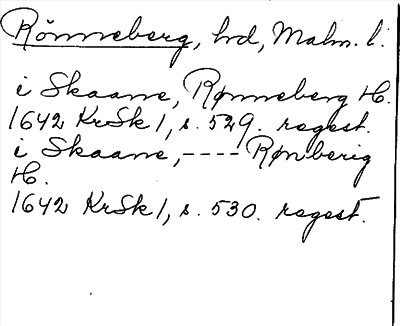 Rönneberg, hd, Malm. l.
i Skaane, Rønneberg H.
1642 KrSk 1, s. 529. regest.
i Skaane,---- Rønberig
H.
1642 KrSk 1, s. 530. regest.